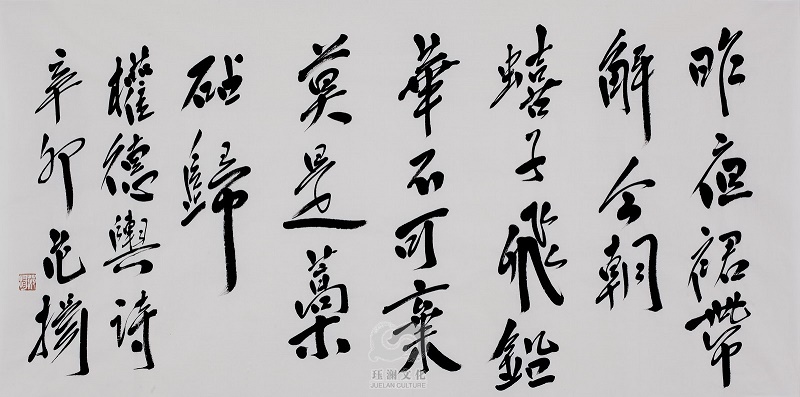 昨夜裙帶
解今朝
蟢子飛鉛
華不可棄
莫是藁
砧歸
權德輿詩
辛卯范
珏澜文化
JUELAN CULTURE